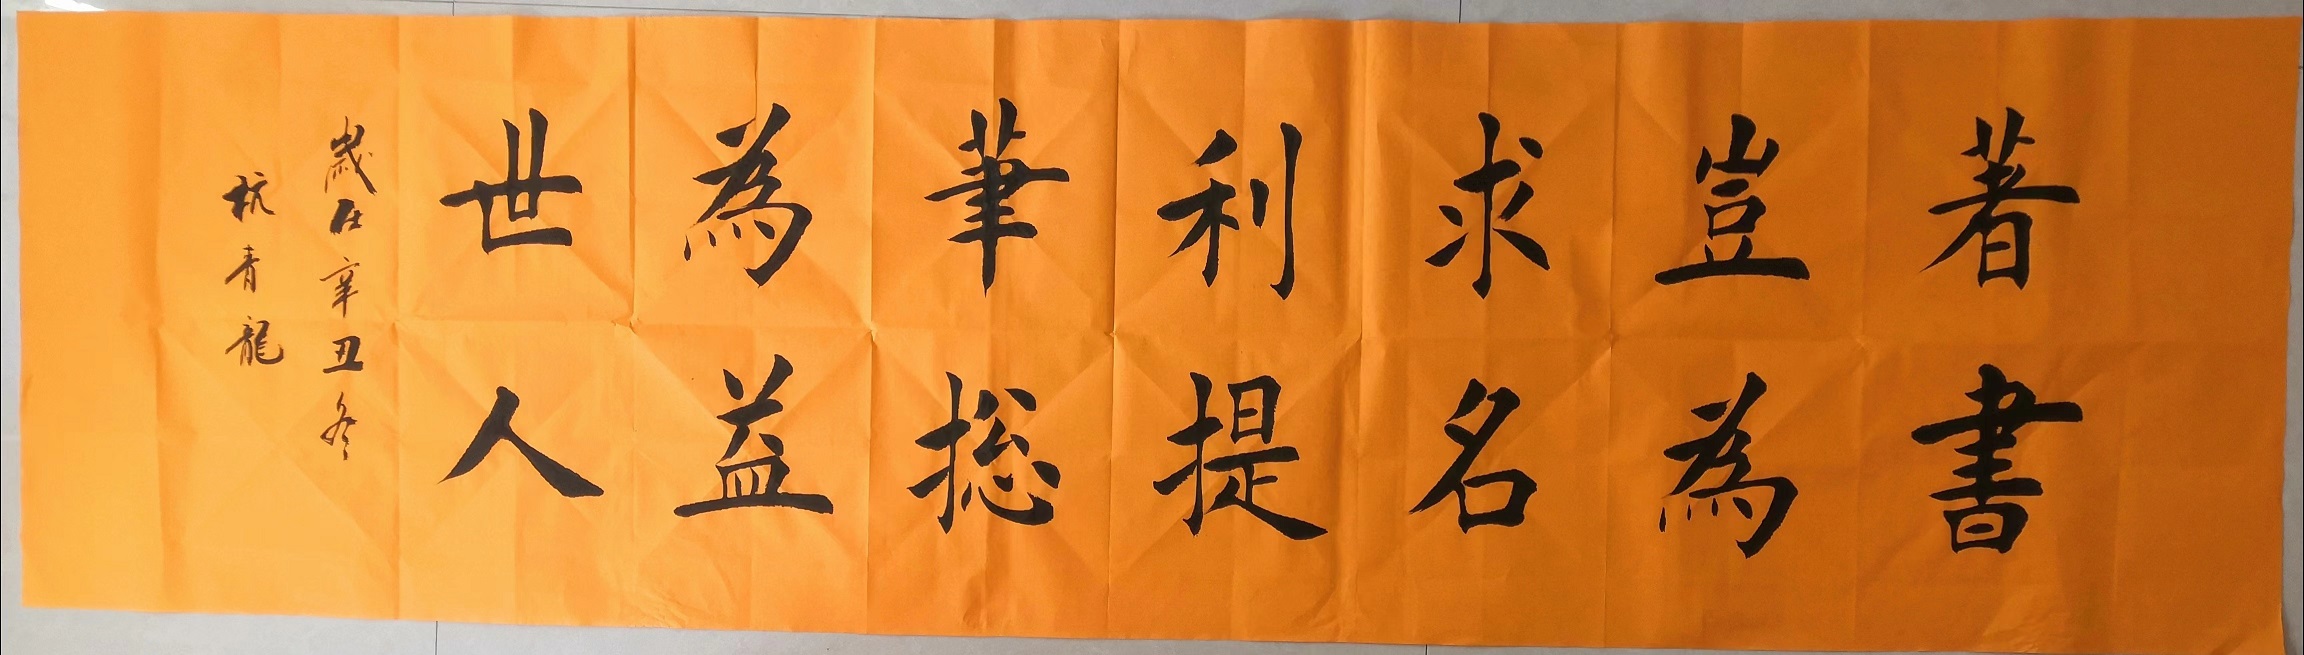 著書
豈為
求名
利提
筆揔
為益
世人
歲在辛丑冬
杭青龍